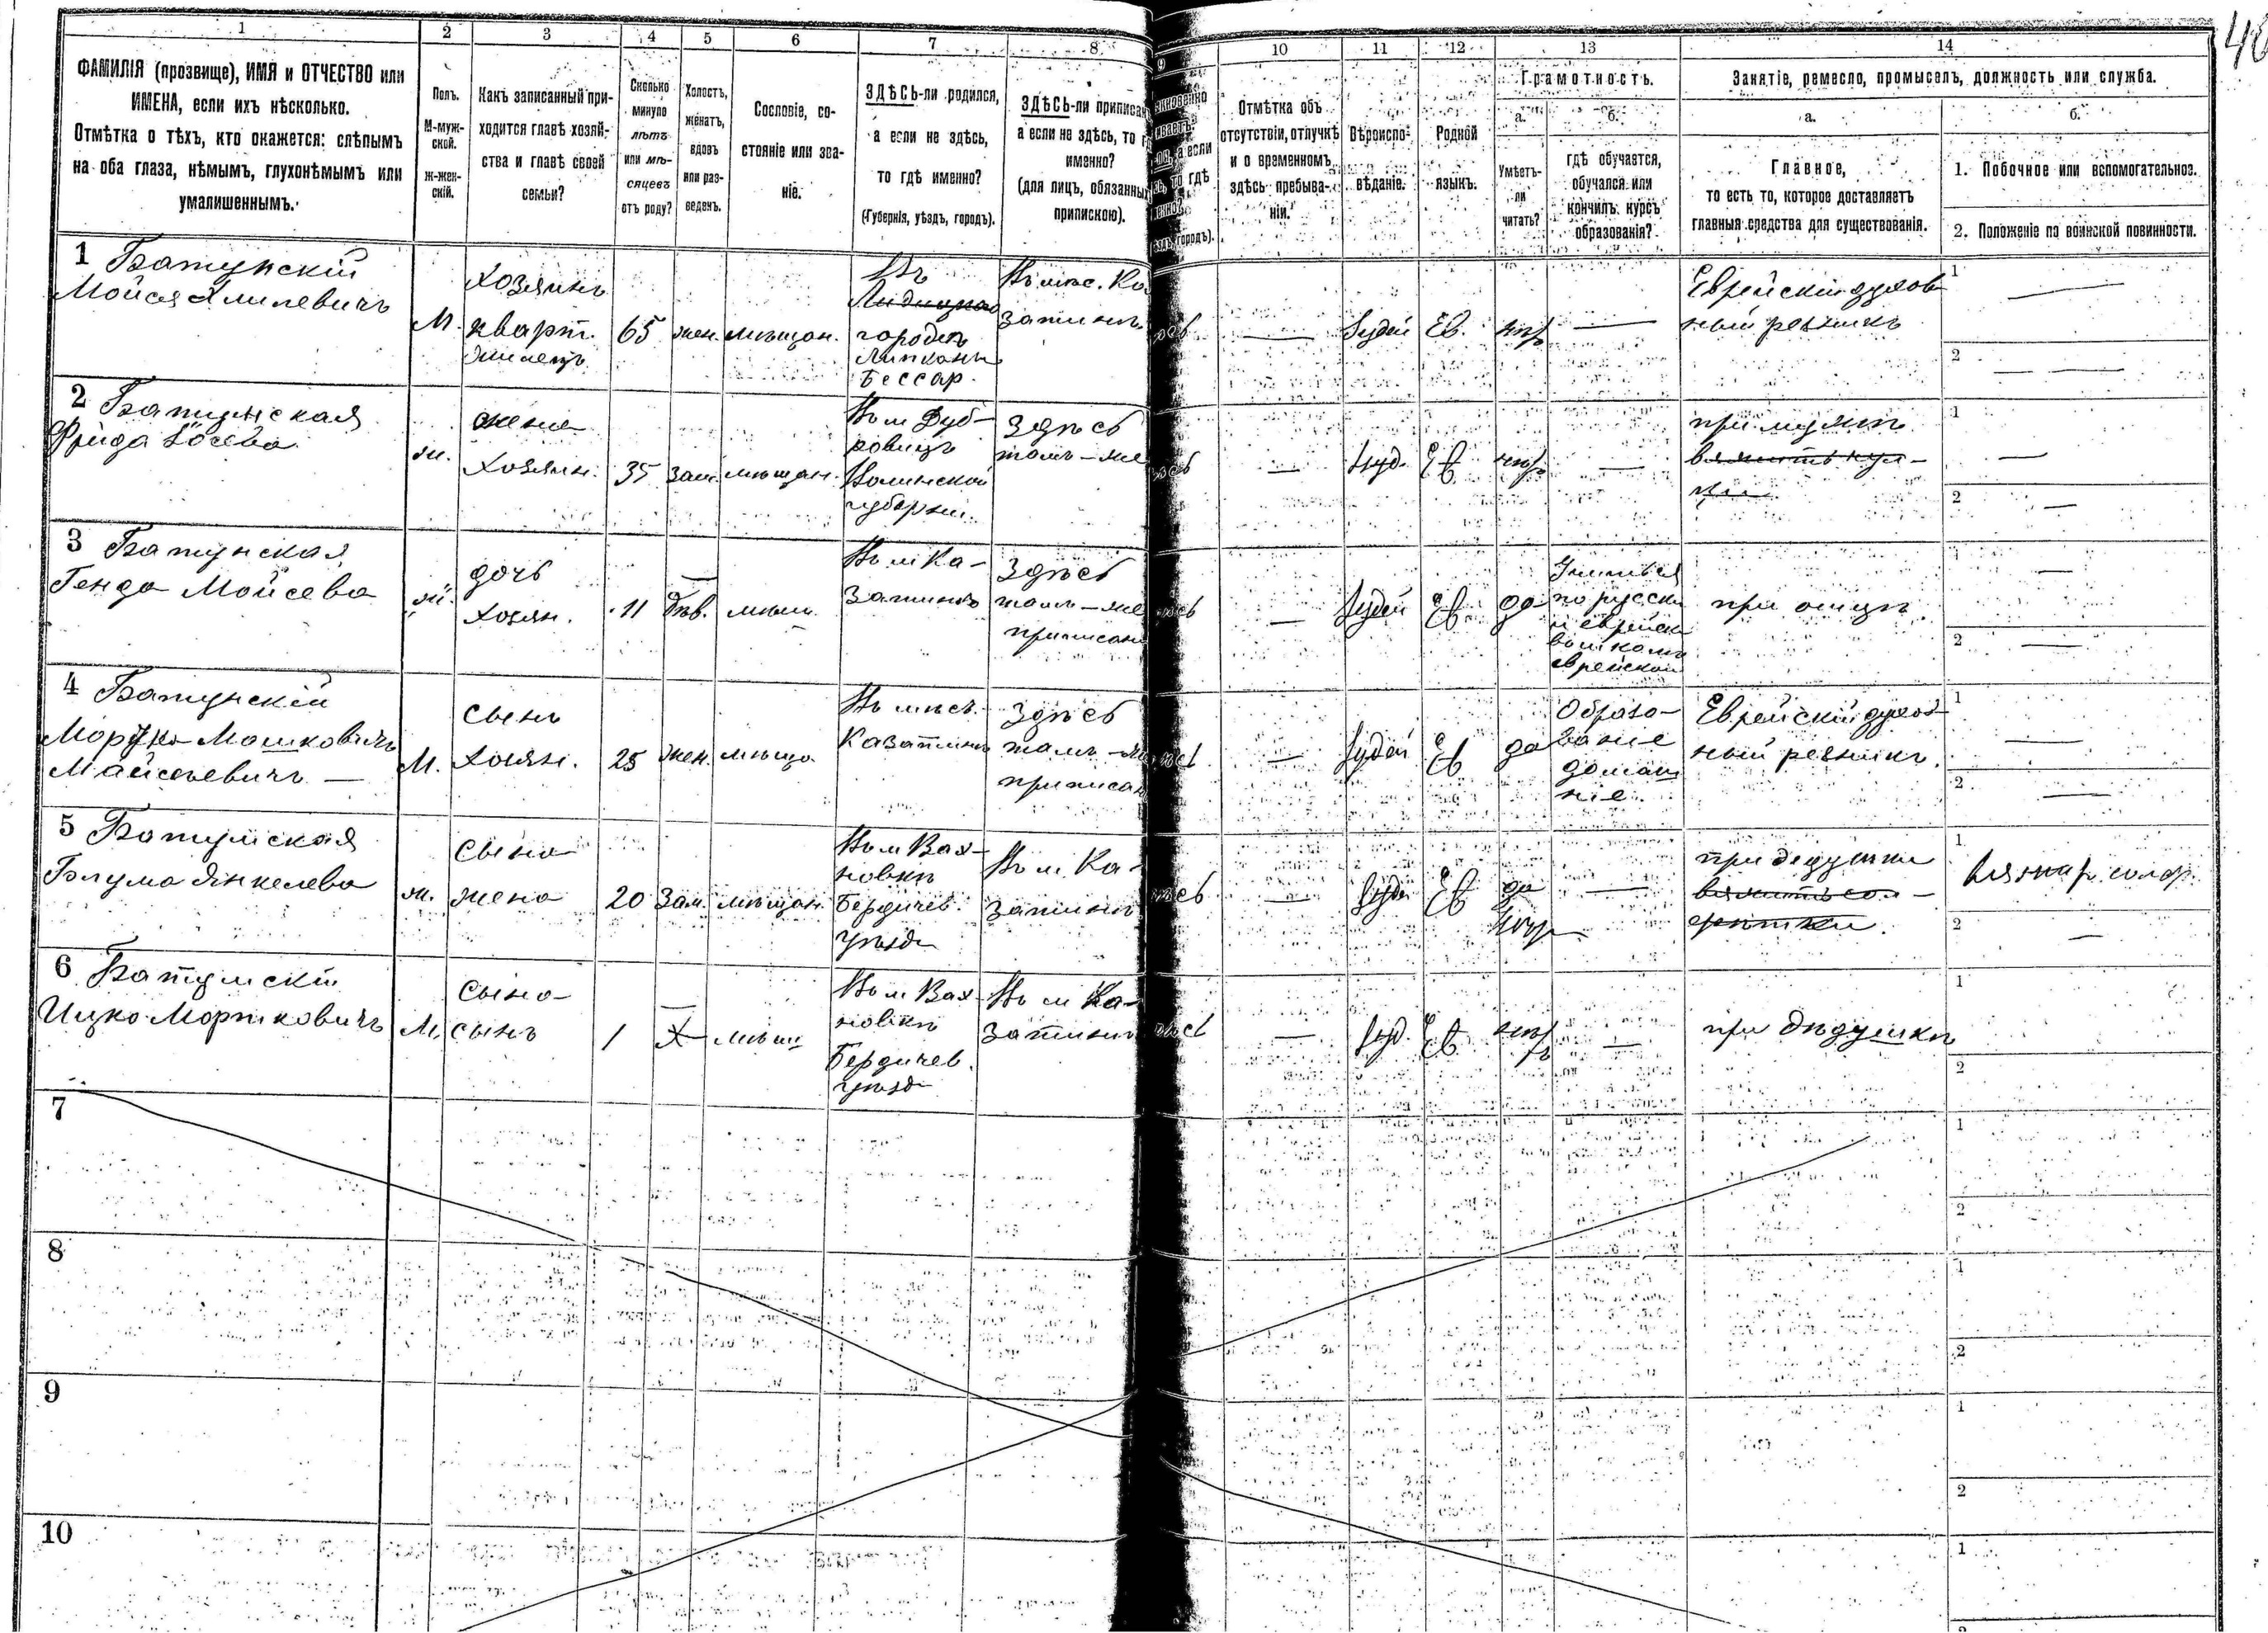 1
2
3
4
5
6
7
8
9
10
11
12
13
14
ФАМИЛІЯ (прозвище), ИМЯ и ОТЧЕСТВО или
ИМЕНА, если ихъ нѣсколько.
Отмѣтка о тѣхъ, кто окажется: слѣпымъ
на оба глаза, нѣмымъ, глухонѣмымъ или
умалишеннымъ.
Полъ.
М-муж-
ской.
ж-жен-
скій.
Какъ записанный при-
ходится главѣ хозяй-
ства и главѣ своей
семьи?
Сколько
минуло
лѣтъ
или мѣ-
сяцевъ
отъ роду?
Холостъ,
женатъ,
вдовъ
или раз-
веденъ.
Сословіе, со-
стояніе или зва-
ніе.
ЗДѢСЬ-ли родился,
а если не здѣсь,
то гдѣ именно?
(Губернія, уѣздъ, городъ).
ЗДѢСЬ-ли приписа
а если не здѣсь, то г
именно?
(для лицъ, обязанны
припискою).
а если
то гдѣ
городъ).
Отмѣтка объ
отсутствіи, отлучкѣ
и о временномъ
здѣсь пребыва-
ніи.
Вѣроиспо-
вѣданіе.
Родной
языкъ.
Грамотность.
а.
Умѣетъ-
ли
читать?
б.
гдѣ обучается,
обучался или
кончилъ курсъ
образованія?
Занятіе, ремесло, промыселъ, должность или служба.
а.
Главное,
то есть то, которое доставляетъ
главныя средства для существованія.
б.
1. Побочное или вспомогательное.
2. Положеніе по воинской повинности.
1 Батунскій
Мойся
М.
Хозяинъ
кварт.
жилецъ
65
жен.
мѣщан.
Въ
городѣ
Липканы
Бессар.
Въ мѣс. Ка
затинъ
—
Іудей
Ев.
нѣтъ
—
Еврейскій духов
ный рѣзникъ
1 —
2 — —
2 Батунская
Фрида Іосева
ж.
жена
Хозяин.
35
Зам.
мѣщан.
Въ м Дуб-
ровицъ
Волынской
губерніи.
Здѣсь
тамъ-же
—
Іуд.
Ев
нѣтъ
—
при мужѣ
1 —
2 —
3 Батунская
Генда Мойсева
ж.
дочь
Хозяин.
11
Дѣв.
мѣщ.
Въ м Ка-
затинъ
Здѣсь
тамъ-же
приписан
—
Іудей
Ев
да
по русски
и еврейск
еврейской
при отцѣ
1 —
2
4 Батунскій
Мошковичъ
Майсеевичъ —
М.
сынъ
Хозяин.
25
жен.
мѣщ.
Въ мѣст.
Казатинъ
Здѣсь
тамъ-же
приписан
—
Іудей
Ев
да
Образо-
ваніе
домаш
ніе
Еврейскій духов-
ный рѣзникъ.
1 —
2 —
5 Батунская
Блума Янкелева
ж.
Сына
жена
20
Зам.
мѣщан.
Въ м Вах-
новкѣ
Бердичев.
уѣзд
Въ м. Ка-
затинъ
—
Іудей
Ев
да
—
при дедушки
1
2 —
6 Батунскій
Ицко Мортковичъ
М.
Сына
сынъ
1
Х
мѣщ
Въ м Вах-
новкѣ
Бердичев.
уѣзд
Въ м Ка-
затинъ
—
Іуд.
Ев
нѣтъ
—
при дѣдушкѣ
1
2
7
1
2
8
1
2
9
1
2
10
1